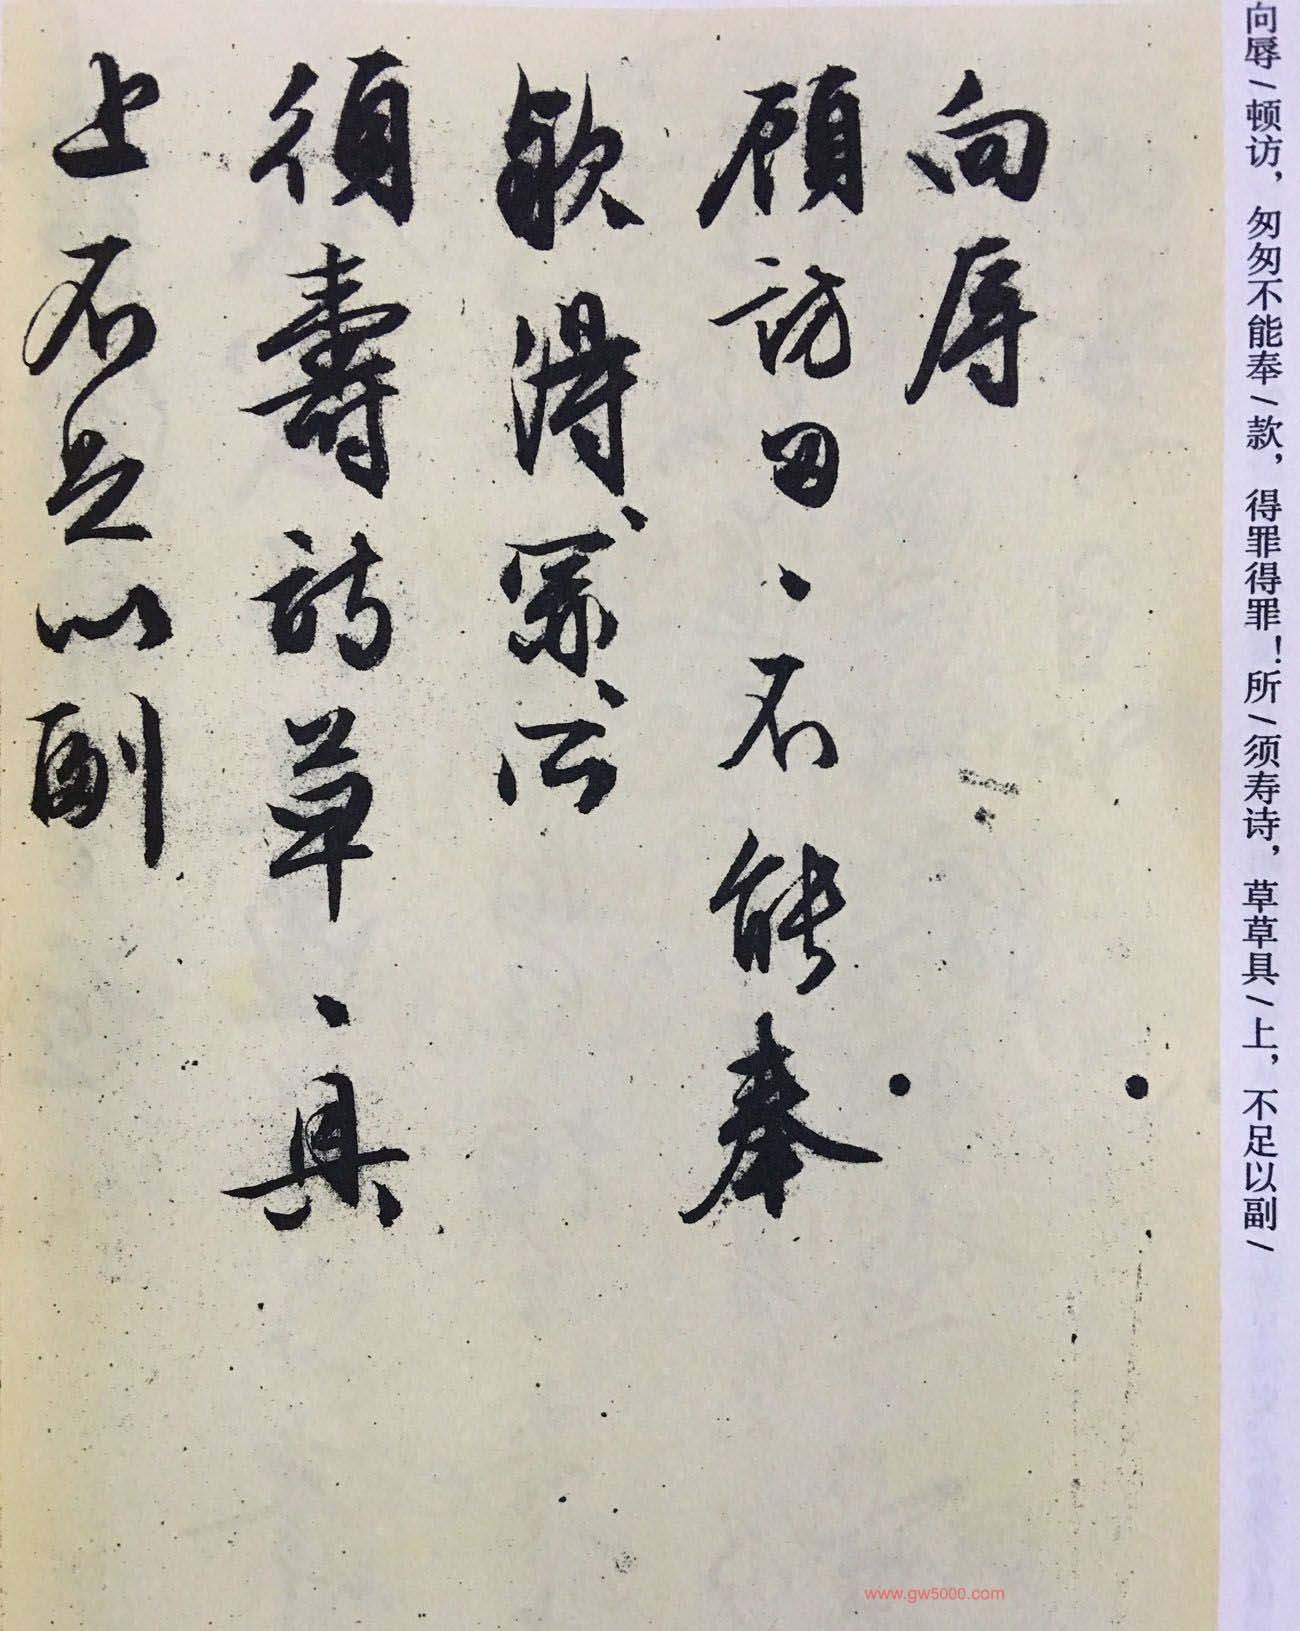 向辱/顿访，匆匆不能奉/款，得罪得罪！所/须寿诗，草草具/上，不足以副/
向辱
顾访匆〻不能奉
款得〻罪〻所
须寿诗草〻具
上不足以副
www.gw5000.com